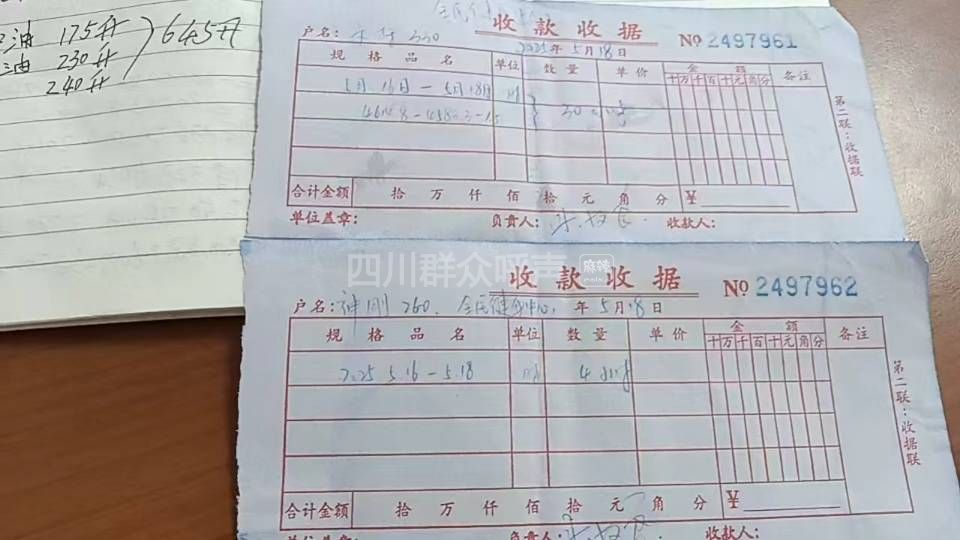 油 175升
油 230升
240升
645升
全民健
收款收据
No 2497961
户名: 330
2025年5月18日
规格品名 单位 数量 单价 金额 备注
十万千百十元角分
5月16日-5月18日 时
30 小时
合计金额 拾 万 仟 佰 拾 元 角 分 ¥
单位盖章: 负责人: 收款人:
第二联:收据联
四川群众呼声 麻辣
收款收据
No 2497962
户名: 神刚260. 全民健身中心. 年5月18日
规格品名 单位 数量 单价 金额 备注
十万千百十元角分
2025 5.16-5.18 时 4小时
合计金额 拾 万 仟 佰 拾 元 角 分 ¥
单位盖章: 负责人: 收款人:
第二联:收据联